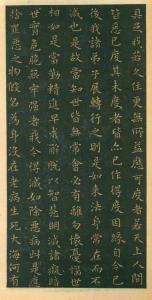 具足我若久住更無所益應可度者若天上人間
皆悉已度其未度者皆亦已作得度因緣自今已
後我諸弟子展轉行之則是如來法身常在而不
滅也是故當知世皆無常會必有離勿懷憂惱世
相如是當勤精進早求解脫以智慧明滅諸癡暗
世實危脆無牢強者我今得滅如除惡病此是應
捨罪惡之物假名為身沒在老病生死大海何有